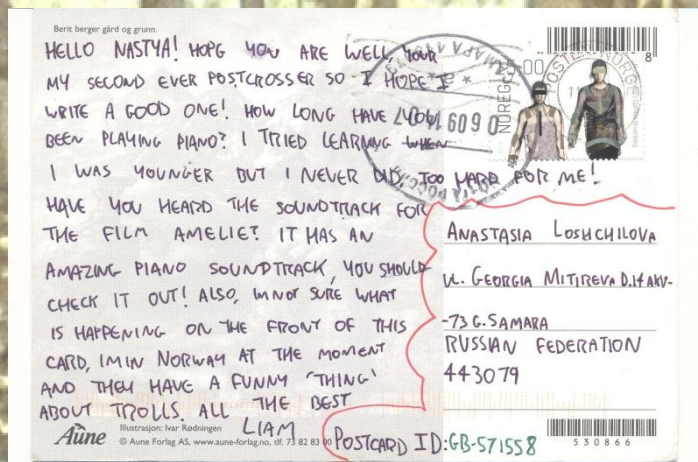 Berit berger gård og grunn.
HELLO NASTYA! HOPE YOU ARE WELL, YOUR
MY SECOND EVER POSTCROSSER SO I HOPE I
WRITE A GOOD ONE! HOW LONG HAVE YOU
BEEN PLAYING PIANO? I TRIED LEARNING WHEN
I WAS YOUNGER BUT I NEVER DID, TOO HARD FOR ME!
HAVE YOU HEARD THE SOUNDTRACK FOR
THE FILM AMELIE? IT HAS AN
AMAZING PIANO SOUNDTRACK, YOU SHOULD
CHECK IT OUT! ALSO, IM NOT SURE WHAT
IS HAPPENING ON THE FRONT OF THIS
CARD, IM IN NORWAY AT THE MOMENT
AND THEY HAVE A FUNNY 'THING'
ABOUT TROLLS. ALL THE BEST
LIAM
Aune
Illustrasjon: Ivar Rødningen
© Aune Forlag AS, www.aune-forlag.no, tlf. 73 82 83 00
NOREG
POSTEN NORGE
8
ANASTASIA LOSHCHILOVA
UL. GEORGIA MITIREVA D.14 AKV-
-73 G. SAMARA
RUSSIAN FEDERATION
443079
POSTCARD ID: GB-571558
530866